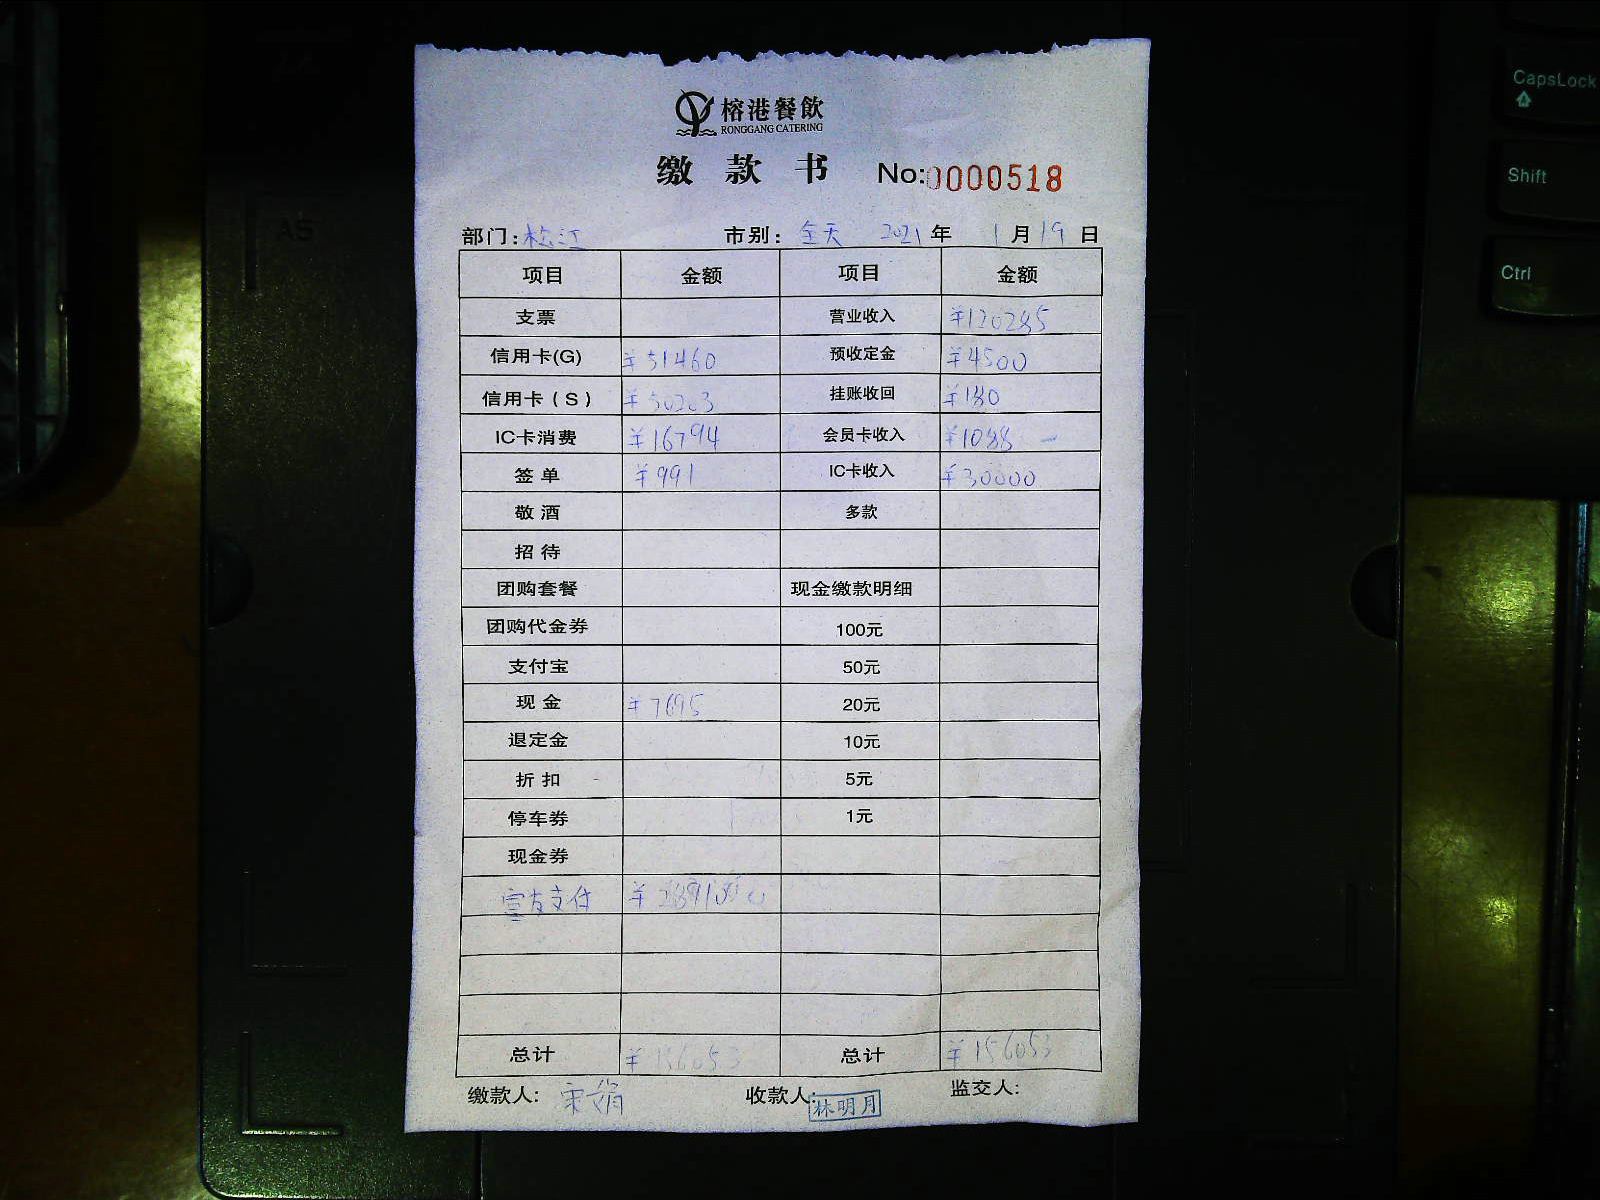 榕港餐飲
RONGGANG CATERING
缴款书 No:0000518
部门:松江 市别:全天 2021年1月19日
项目 金额 项目 金额
支票 营业收入 ¥120285
信用卡(G) ¥51460 预收定金 ¥4500
信用卡(S) ¥50203 挂账收回 ¥180
IC卡消费 ¥16794 会员卡收入 ¥1088 -
签单 ¥991 IC卡收入 ¥30000
敬酒 多款
招待
团购套餐 现金缴款明细
团购代金券 100元
支付宝 50元
现金 ¥7695 20元
退定金 10元
折扣 5元
停车券 1元
现金券
富友支付
总计 ¥156053 总计 ¥156053
缴款人:宋娟 收款人:林明月 监交人:
A5
CapsLock
Shift
Ctrl